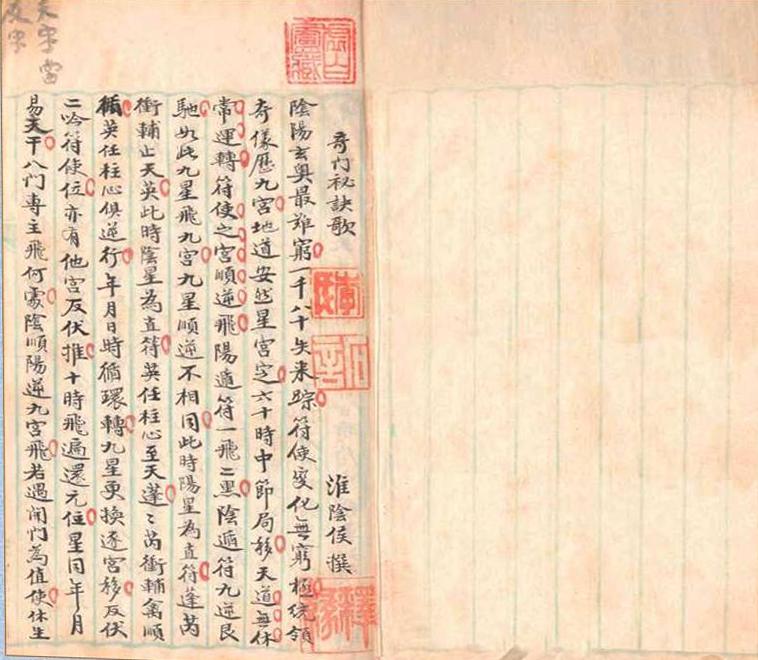 奇门祕訣歌　淮陰侯撰
陰陽玄奥最难窮一千八十失来踪符使变化無窮極統領
奇儀歷九宮地道安然星宮定六十時中節局移天道無休
常運轉符使之宮順逆飛陽遁符一飛二黑陰遁符九逆艮
馳如此九星飛九宮九星順逆不相同此時陽星為直符蓬芮
衝輔止天英此時陰星為直符英任柱心至天蓬〻芮衝輔禽順
循英任柱心俱逆行年月日時循環轉九星更換逐宮移反伏
二吟符使位亦有他宮反伏推十時飛遍還元位星同年月
易天干八门專主飛何處陰順陽逆九宮飛若遇開門為值使休生
反字